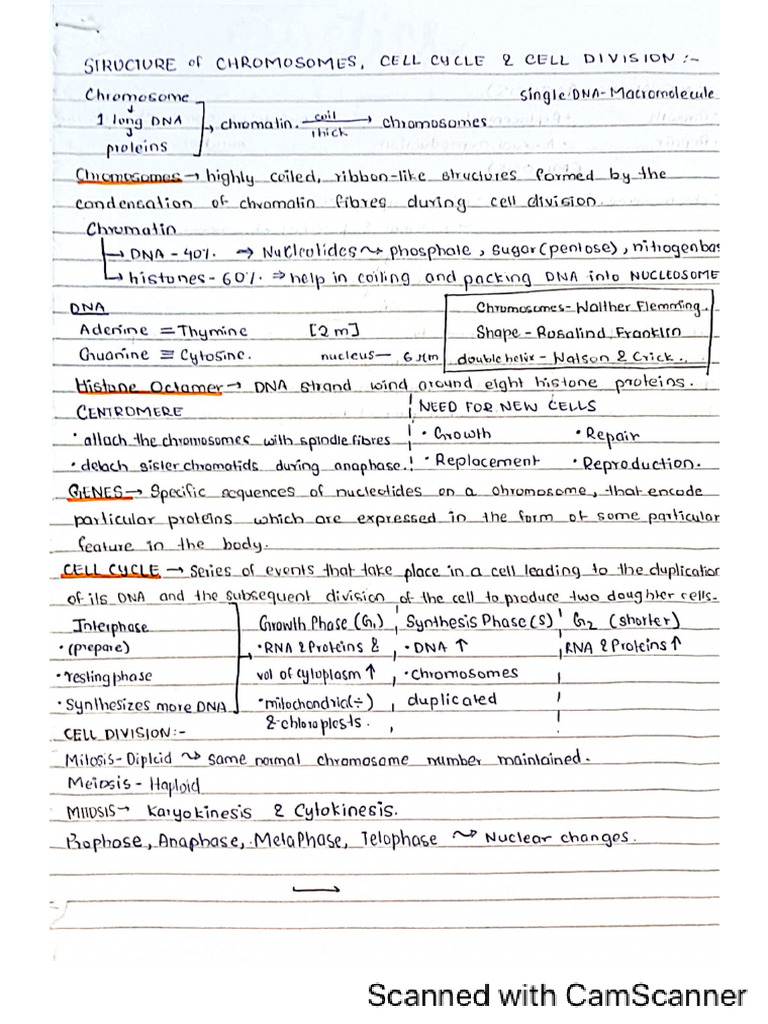 STRUCTURE of CHROMOSOMES, CELL CYCLE & CELL DIVISION :-
Chromosome single DNA-Macromolecule
1 long DNA chromatin. coil thick → chromosomes
proteins
Chromosomes → highly coiled, ribbon-like structures formed by the
condensation of chromatin fibres during cell division.
Chromatin
→ DNA - 40%. → Nucleotides ⇝ phosphate, sugar (pentose), nitrogenbas
→ histones - 60%. ⇒ help in coiling and packing DNA into NUCLEOSOME
DNA Chromosomes - Walther Flemming.
Adenine = Thymine [2 m] Shape - Rosalind Franklin
Guanine ≡ Cytosine. nucleus — 6 µm double helix - Watson & Crick.
Histone Octamer → DNA strand wind around eight histone proteins.
CENTROMERE NEED FOR NEW CELLS
• attach the chromosomes with spindle fibres • Growth • Repair
• detach sister chromatids during anaphase. • Replacement • Reproduction.
GENES → Specific sequences of nucleotides on a chromosome, that encode
particular proteins which are expressed in the form of some particular
feature in the body.
CELL CYCLE → Series of events that take place in a cell leading to the duplication
of its DNA and the subsequent division of the cell to produce two daughter cells.
Interphase Growth Phase (G₁) Synthesis Phase (S) G₂ (shorter)
• (prepare) • RNA & Proteins & • DNA ↑ RNA & Proteins ↑
• resting phase vol of cytoplasm ↑ • chromosomes
• Synthesizes more DNA • mitochondria (÷) duplicated
CELL DIVISION :- & chloroplasts.
Mitosis - Diploid ⇝ same normal chromosome number maintained.
Meiosis - Haploid
MITOSIS → Karyokinesis & Cytokinesis.
Prophase, Anaphase, MetaPhase, Telophase ⇝ Nuclear changes.
Scanned with CamScanner